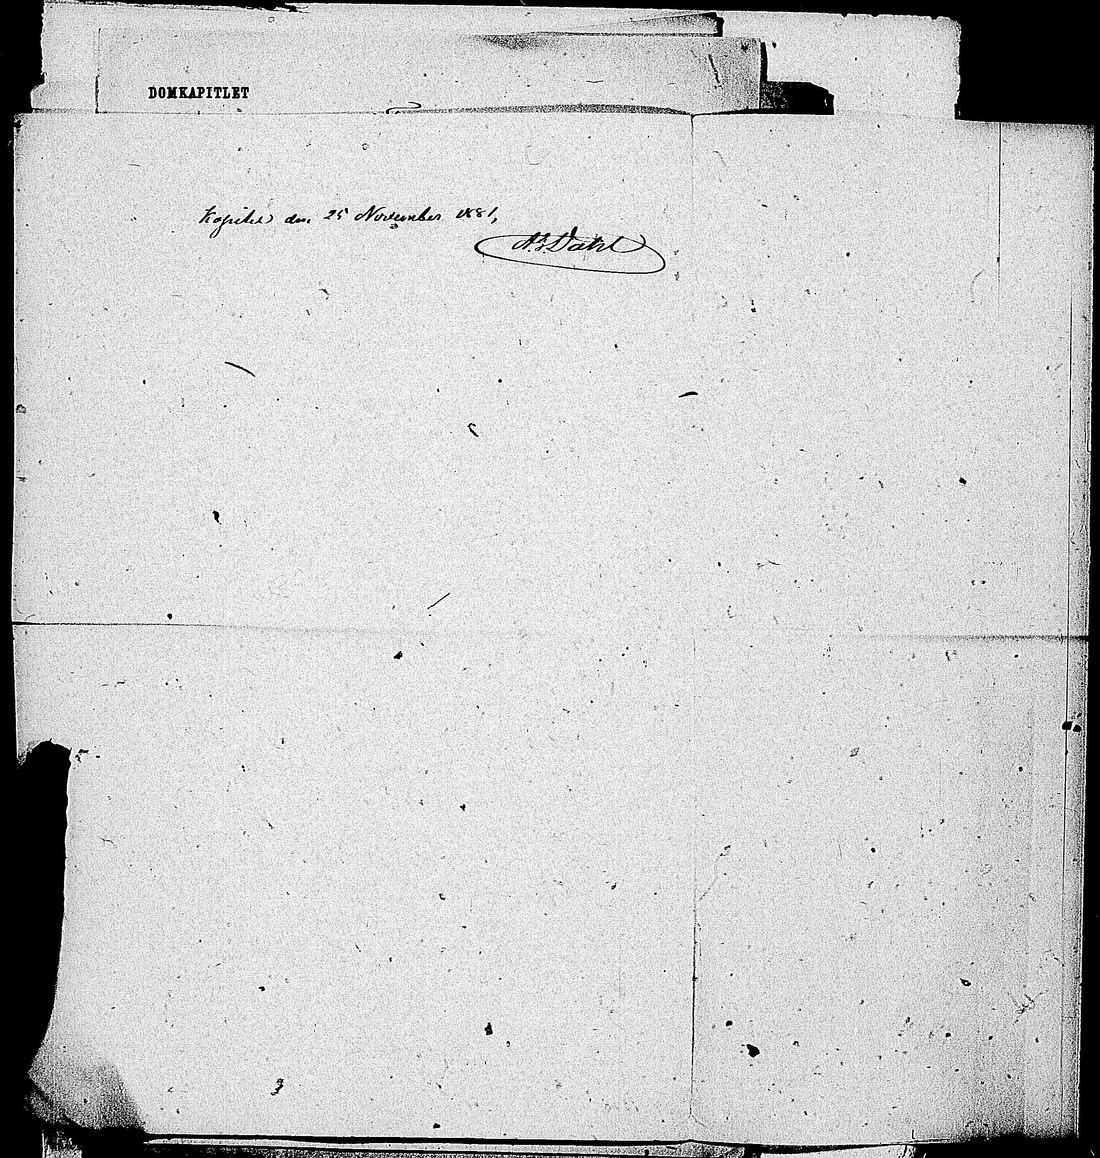 DOMKAPITLET
Kopiled den 25 November 1881,
Dahl